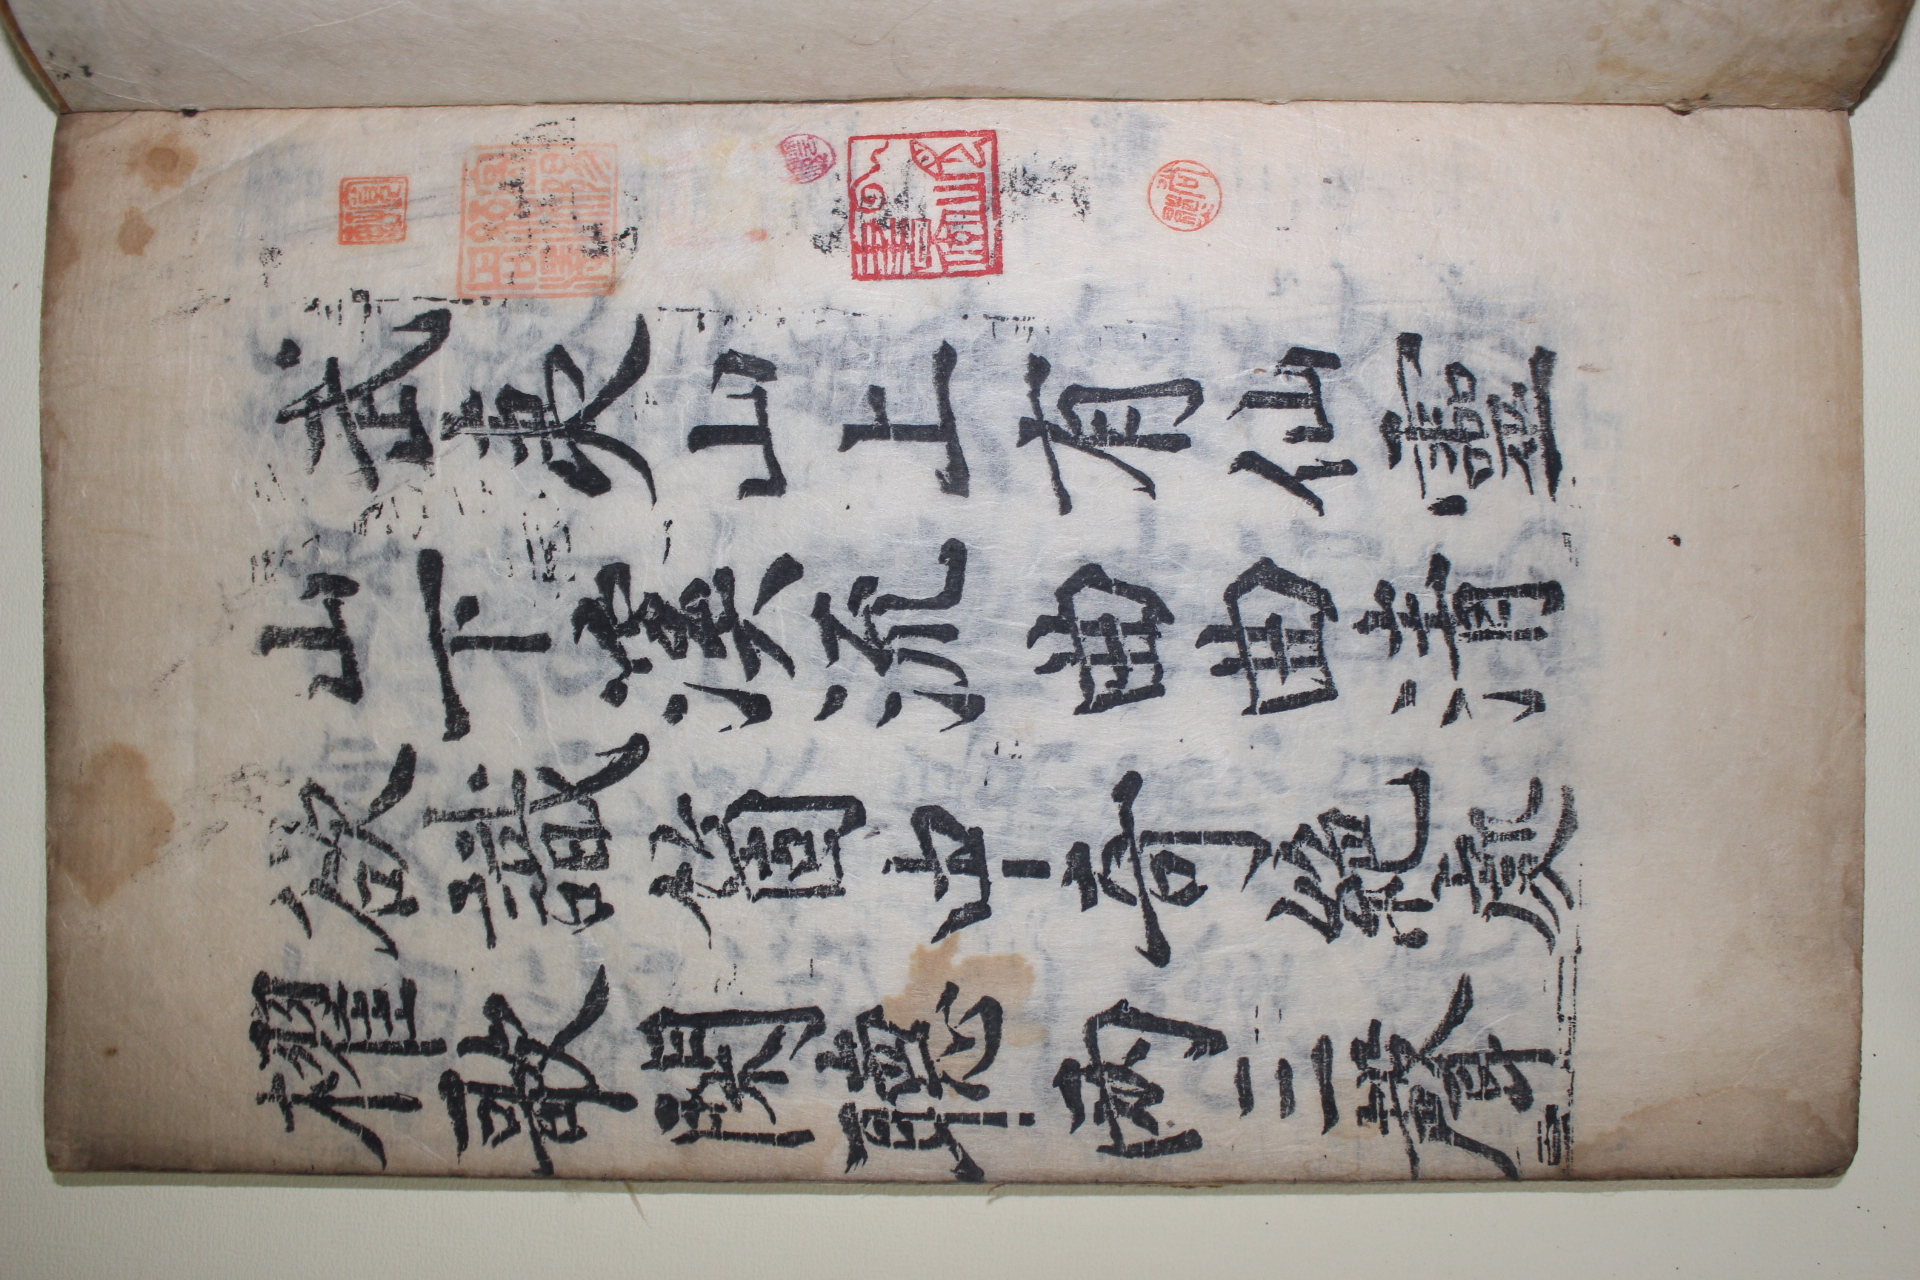 武夷山上有仙靈
山下寒流曲曲清
欲識箇中奇絶處
櫂歌閑聽兩三聲